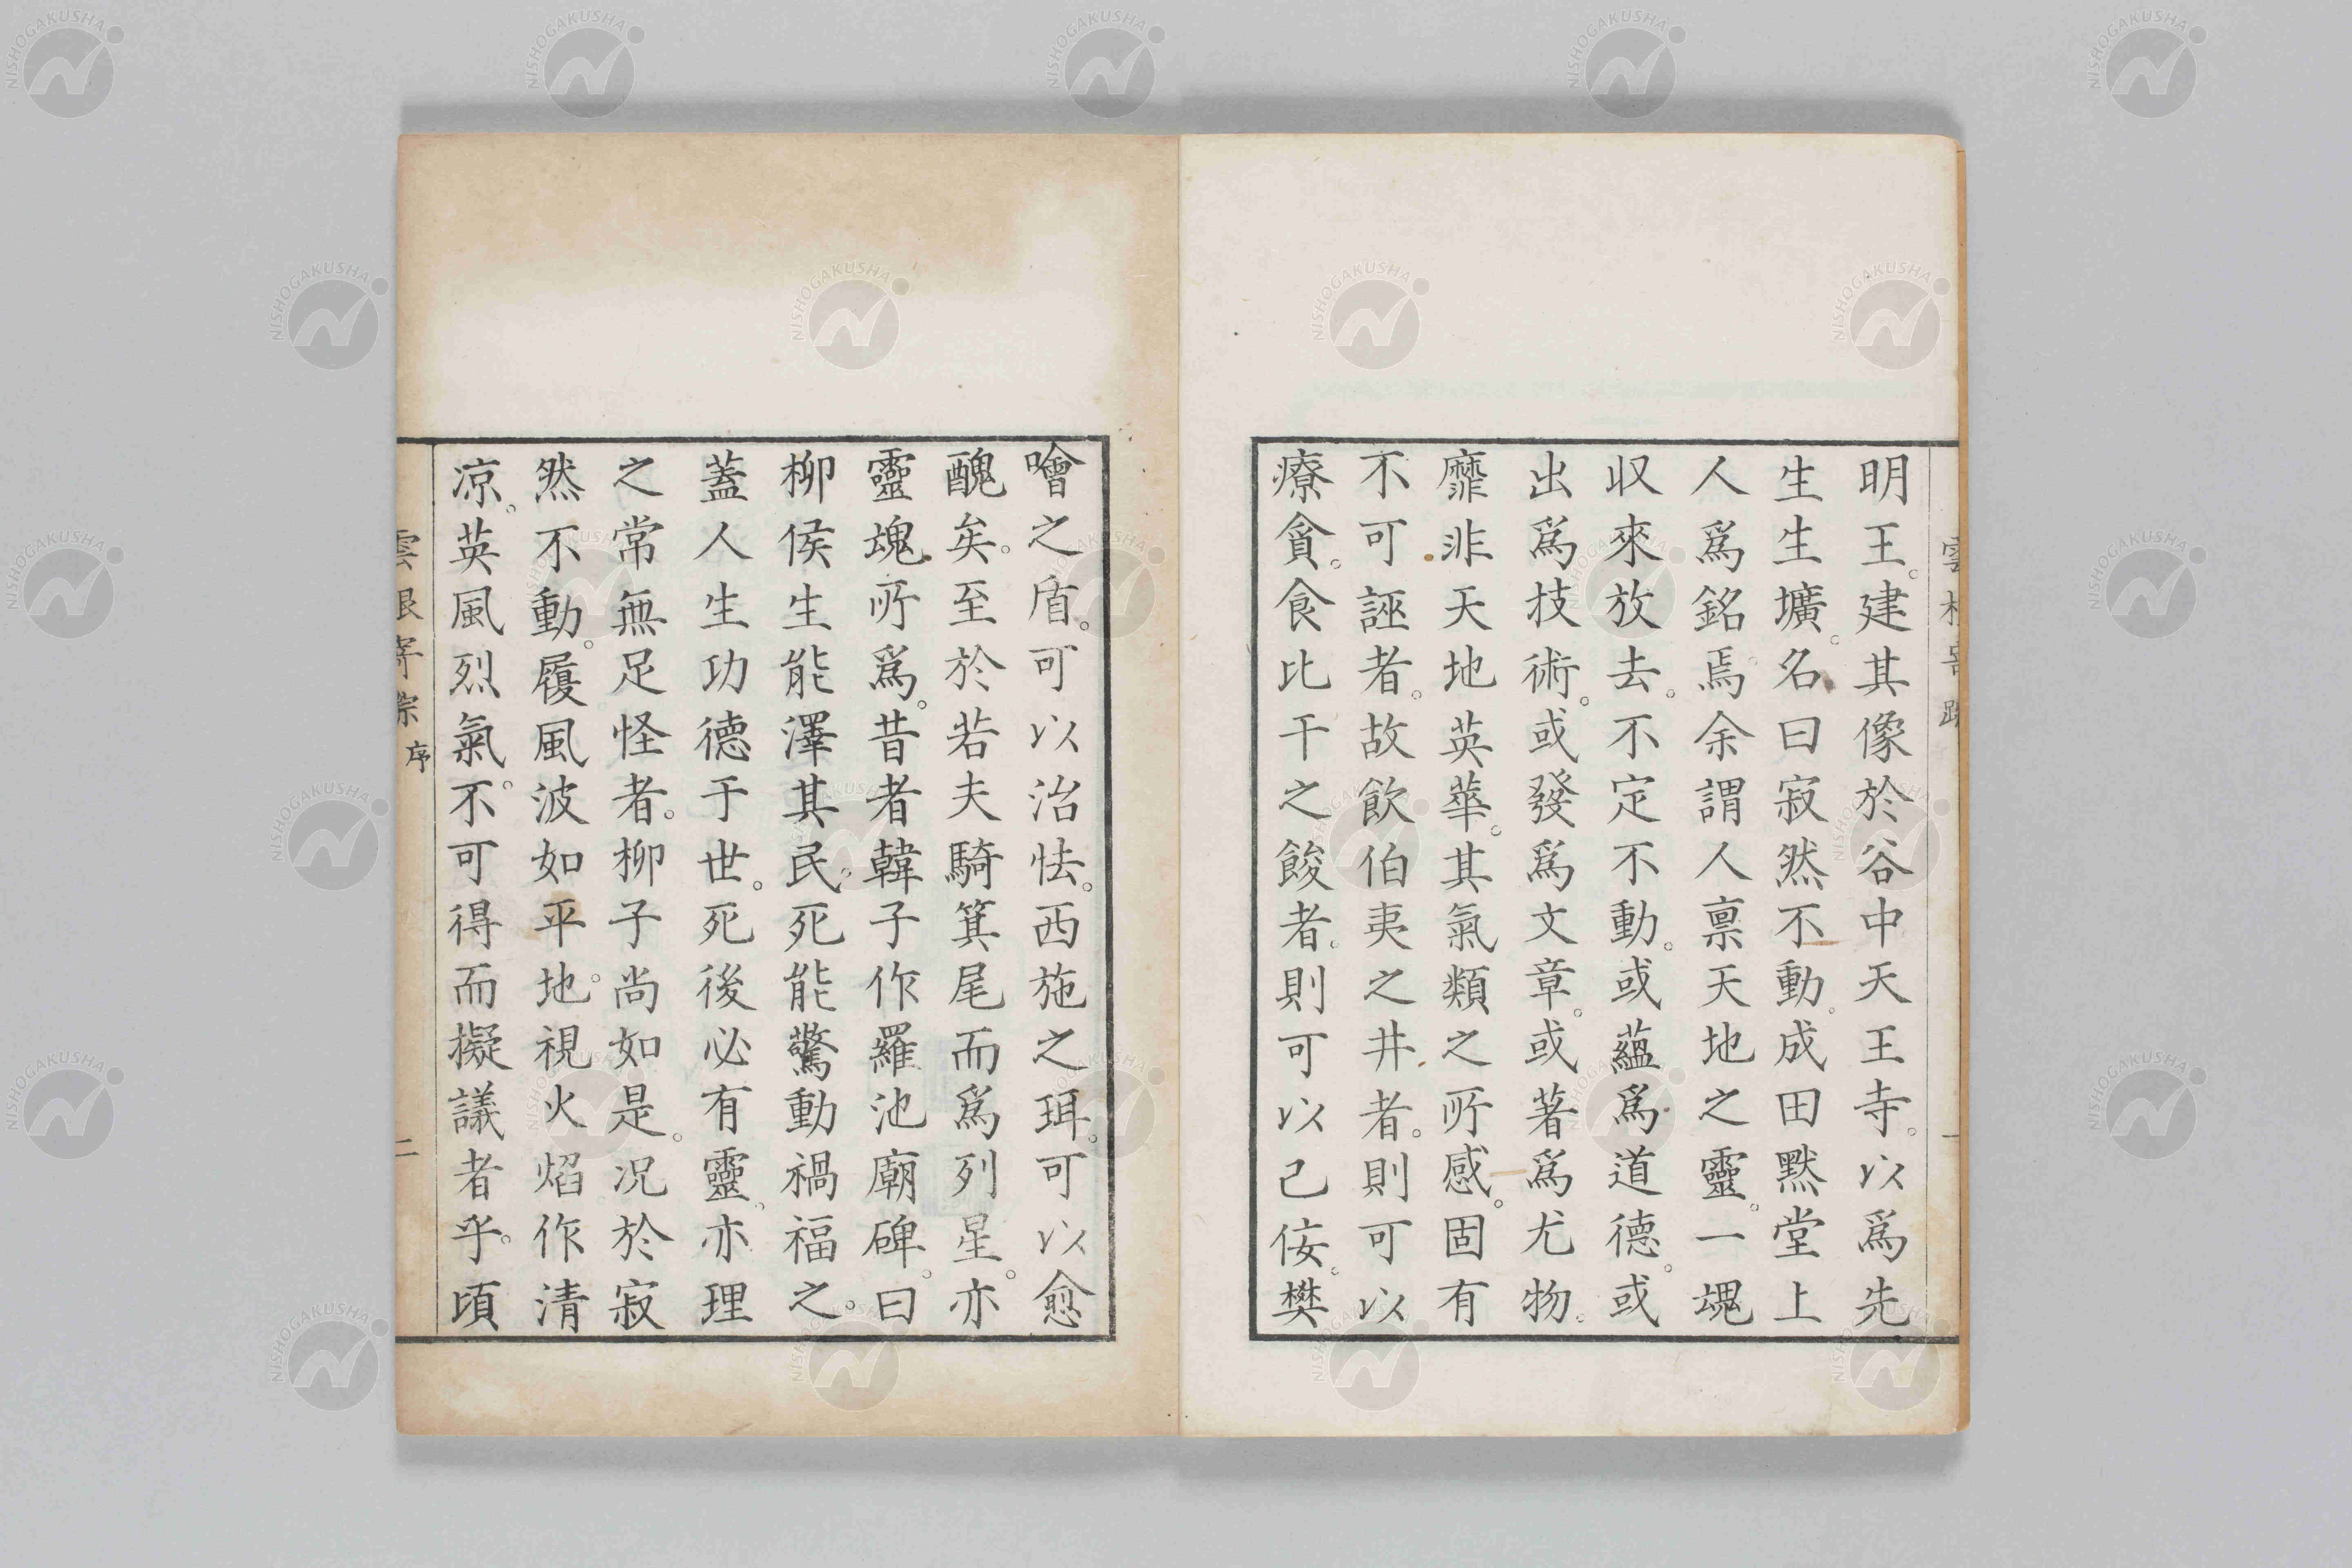 明王。建其像於谷中天王寺。以爲先
生生壙。名曰寂然不動。成田默堂上
人爲銘焉余謂人禀天地之靈。一魂
収來放去。不定不動。或蘊爲道德。或
出爲技術。或發爲文章。或著爲尤物。
靡非天地英華。其氣類之所感。固有
不可誣者。故飲伯夷之井者。則可以
療貪。食比干之餕者。則可以已侫。樊
噲之盾。可以治怯。西施之珥。可以愈
醜矣。至於若夫騎箕尾而爲列星。亦
靈魂所爲。昔者韓子作羅池廟碑。曰
柳侯生能澤其民。死能驚動禍福之。
蓋人生功德于世。死後必有靈。亦理
之常無足怪者。柳子尚如是。况於寂
然不動。履風波如平地。視火焰作清
凉。英風烈氣。不可得而擬議者乎。頃
序
二
NISHOGAKUSHA